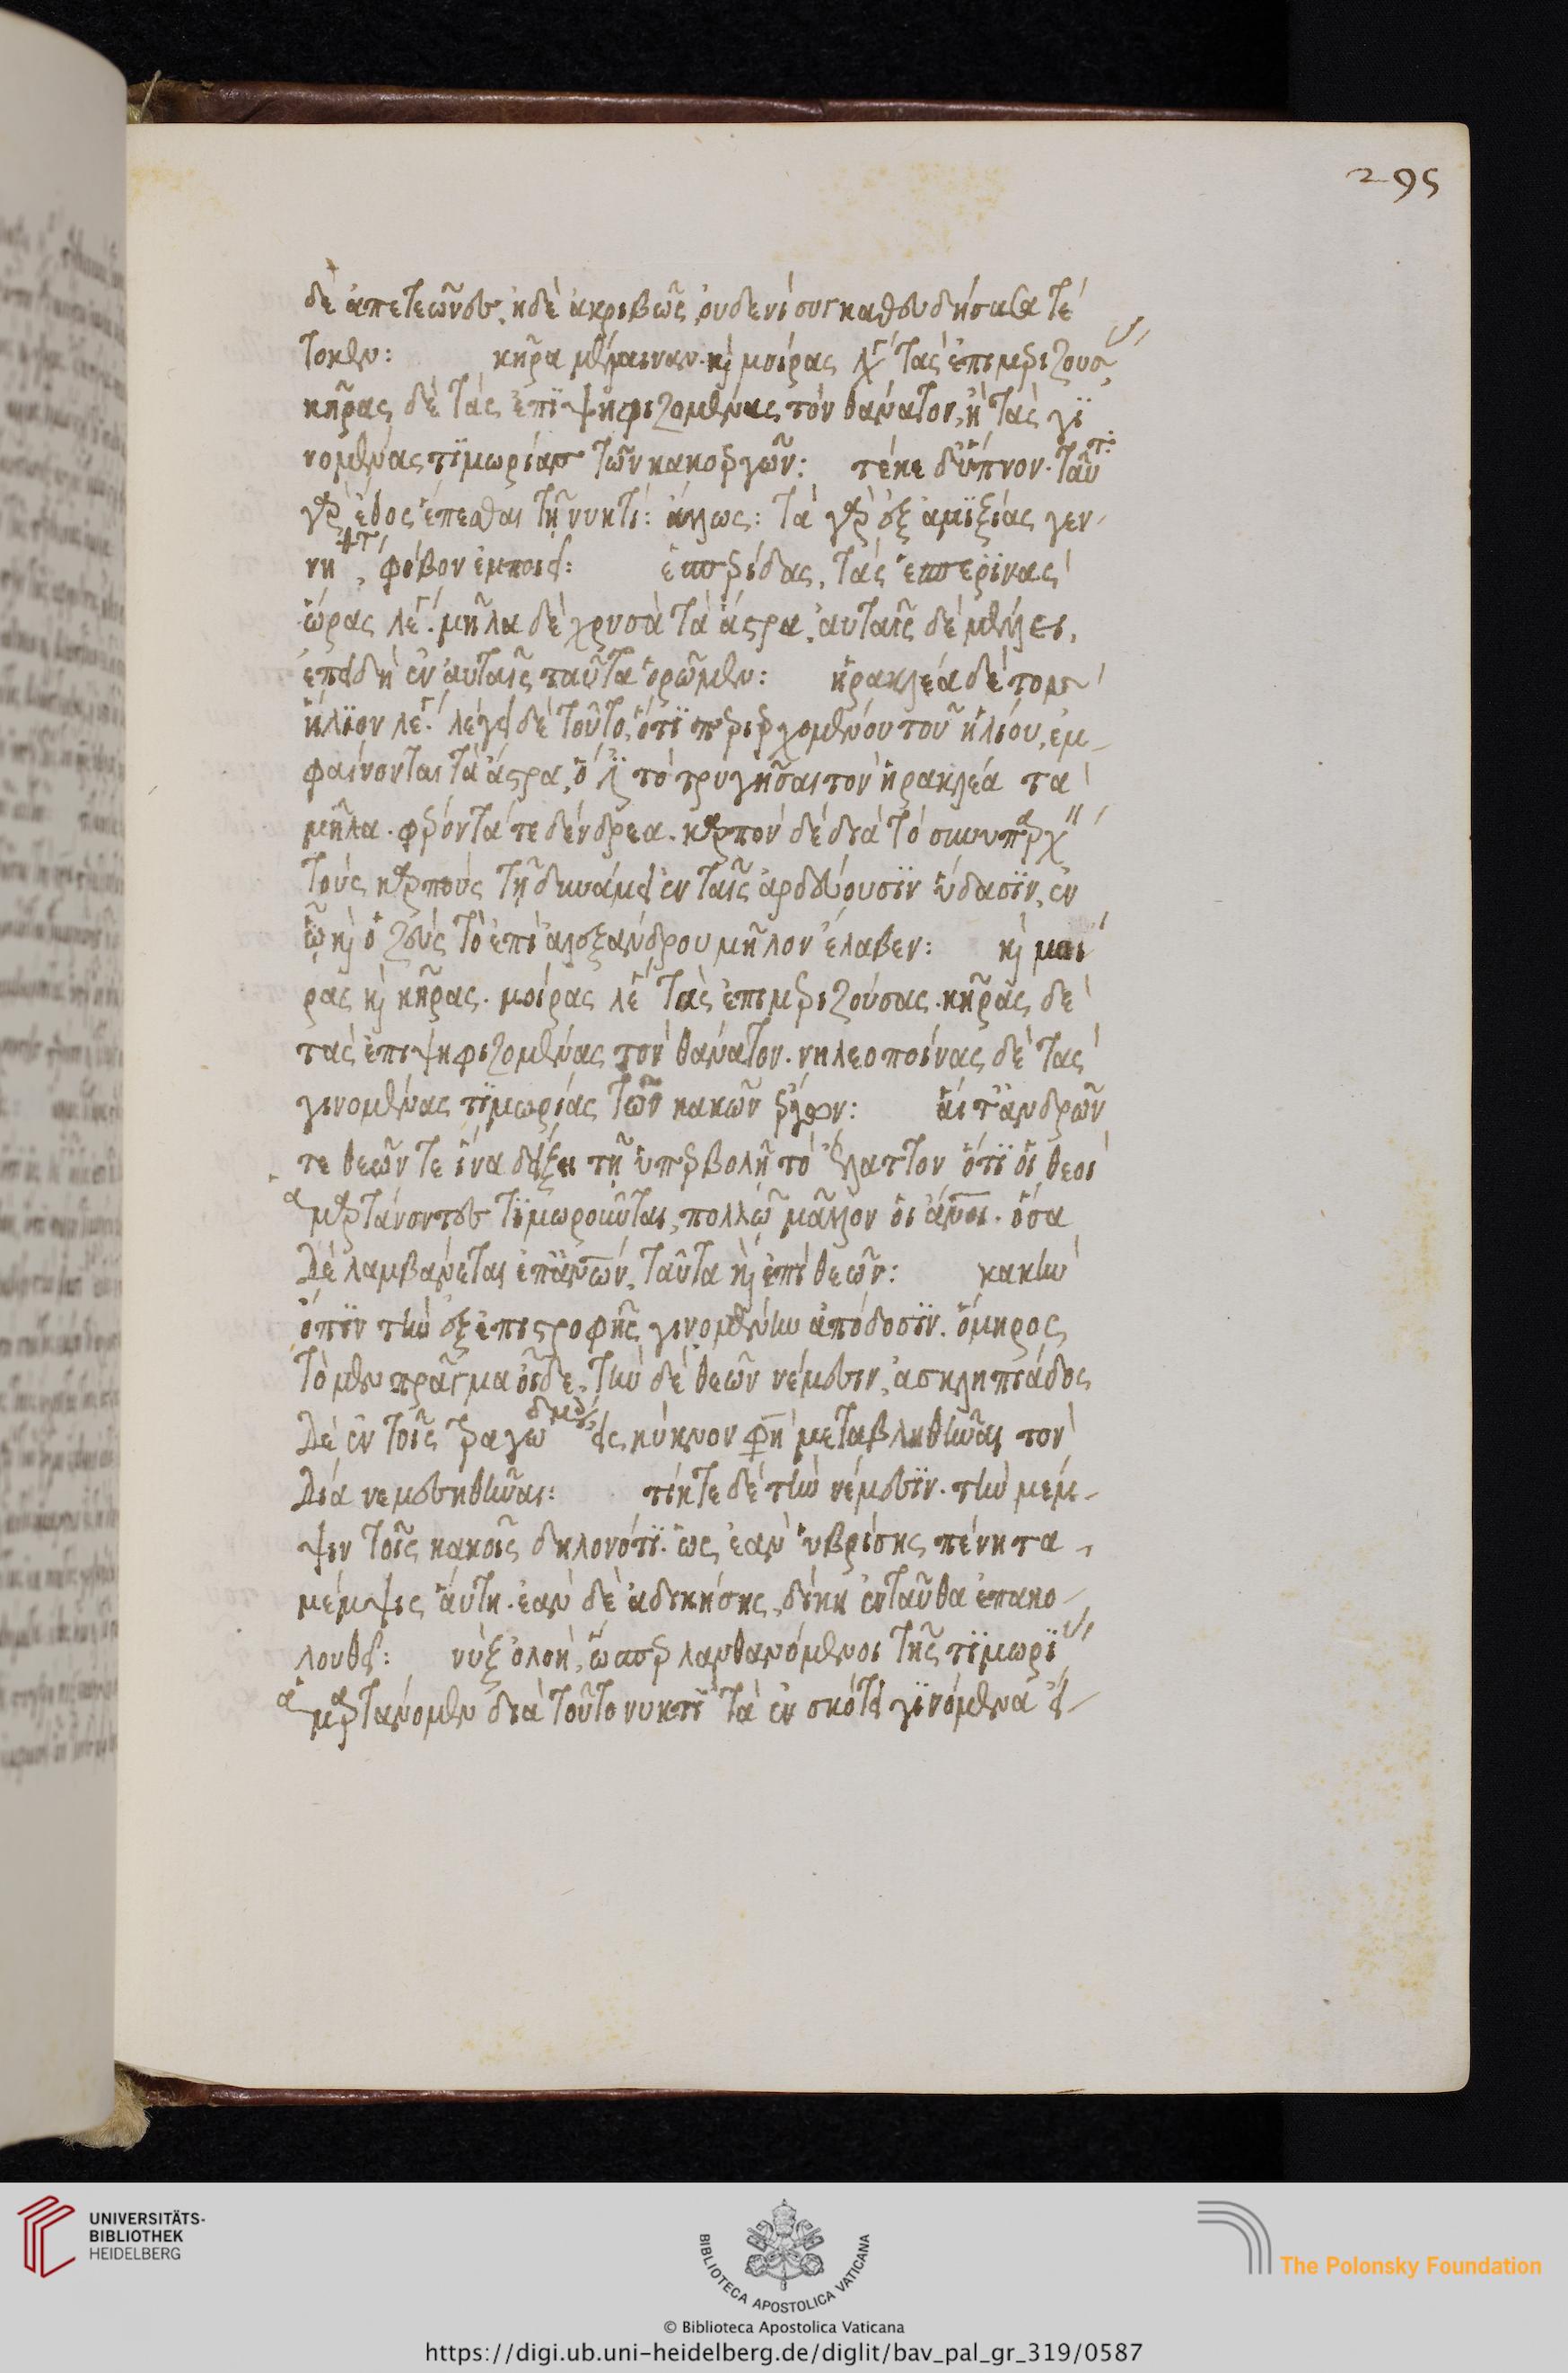 295
δὲ ἀπετεώνει, ἡ δὲ ἀκριβῶς, οὐδενὶ συγκαθευδήσασα τέ
τοκεν: κῆρα μέλαιναν. καὶ μοίρας λέγ τὰς ἐπιμεριζούσ
κῆρας δὲ τὰς ἐπϊψηφιζομένας τὸν θάνατον, ἢ τὰς γϊ
νομένας τϊμωρίας τῶν κακοεργῶν: τέκε δ' ὕπνον. ταῦτ
γὰρ ἔθος ἕπεσθαι τῇ νυκτί: ἄλλως: τὰ γὰρ ἐξ ἀμϊξίας γεν-
νη , φόβον ἐμποιεῖ: ἑσπερίδας, τὰς ἑσπερϊνὰς
ὥρας λέγ. μῆλα δὲ χρυσᾶ τὰ ἄστρα. αὐταῖς δὲ μέλλει,
ἐπειδὴ ἐν αὐταῖς ταῦτα ὁρῶμεν: ἡρακλέα δὲ τὸν
ἥλϊον λέγ. λέγει δὲ τοῦτο, ὅτϊ περιερχομένου τοῦ ἡλίου, ἐμ-
φαίνονται τὰ ἄστρα, ὅ ἐστι τὸ τρυγῆσαι τὸν ἡρακλέα τὰ
μῆλα. φέροντά τε δένδρεα. καρπὸν δὲ διὰ τὸ συνυπάρχ
τοὺς καρποὺς τῇ δυνάμει ἐν ταῖς ἀρδευούσϊν ὕδασϊν, ἐν
ᾧ καὶ ὁ ζεὺς τὸ ἐπὶ ἀλεξάνδρου μῆλον ἔλαβεν: καὶ μοί
ρας καὶ κῆρας. μοίρας λέγ τὰς ἐπιμεριζούσας. κῆρας δὲ
τὰς ἐπιψηφιζομένας τὸν θάνατον. νηλεοποίνας δὲ τὰς
γινομένας τϊμωρίας τῶν κακῶν ἔργων: αἵ τ' ἀνδρῶν
τε θεῶν τε ἵνα δείξει τῇ ὑπερβολῇ τὸ ἔλαττον ὅτϊ οἱ θεοὶ
ἁμαρτάνοντες τϊμωροῦνται, πολλῷ μᾶλλον οἱ ἄνοι. ὅσα
δὲ λαμβάνεται ἐπ' ἀνων, ταῦτα καὶ ἐπὶ θεῶν: κακὴν
ὄπϊν τὴν ἐξ ἐπιστροφῆς γινομένην ἀπόδοσϊν. ὅμηρος
τὸ μὲν πρᾶγμα οἶδε, τὴν δὲ θεῶν νέμεσιν, ἀσκληπιάδος
δὲ ἐν τοῖς τραγωδουμέ ς, κύκνον φη μεταβληθῆναι τὸν
δία νεμεσηθῆναι: τίκτε δὲ τὴν νέμεσϊν. τὴν μέμ-
ψιν τοῖς κακοῖς δηλονότϊ. ὡς ἐὰν ὑβρίσῃς πένητα,
μέμψις αὕτη. ἐὰν δὲ ἀδικήσῃς, δίκη ἐνταῦθα ἐπακο-
λουθεῖ: νὺξ ὀλοή, ὥσπερ λανθανόμενοι τῆς τϊμωρϊ
ἁμαρτάνομεν διὰ τοῦτο νυκτϊ τὰ ἐν σκότει γϊνόμενα εἰ-
UNIVERSITÄTS-
BIBLIOTHEK
HEIDELBERG
BIBLIOTECA APOSTOLICA VATICANA
The Polonsky Foundation
© Biblioteca Apostolica Vaticana
https://digi.ub.uni-heidelberg.de/diglit/bav_pal_gr_319/0587